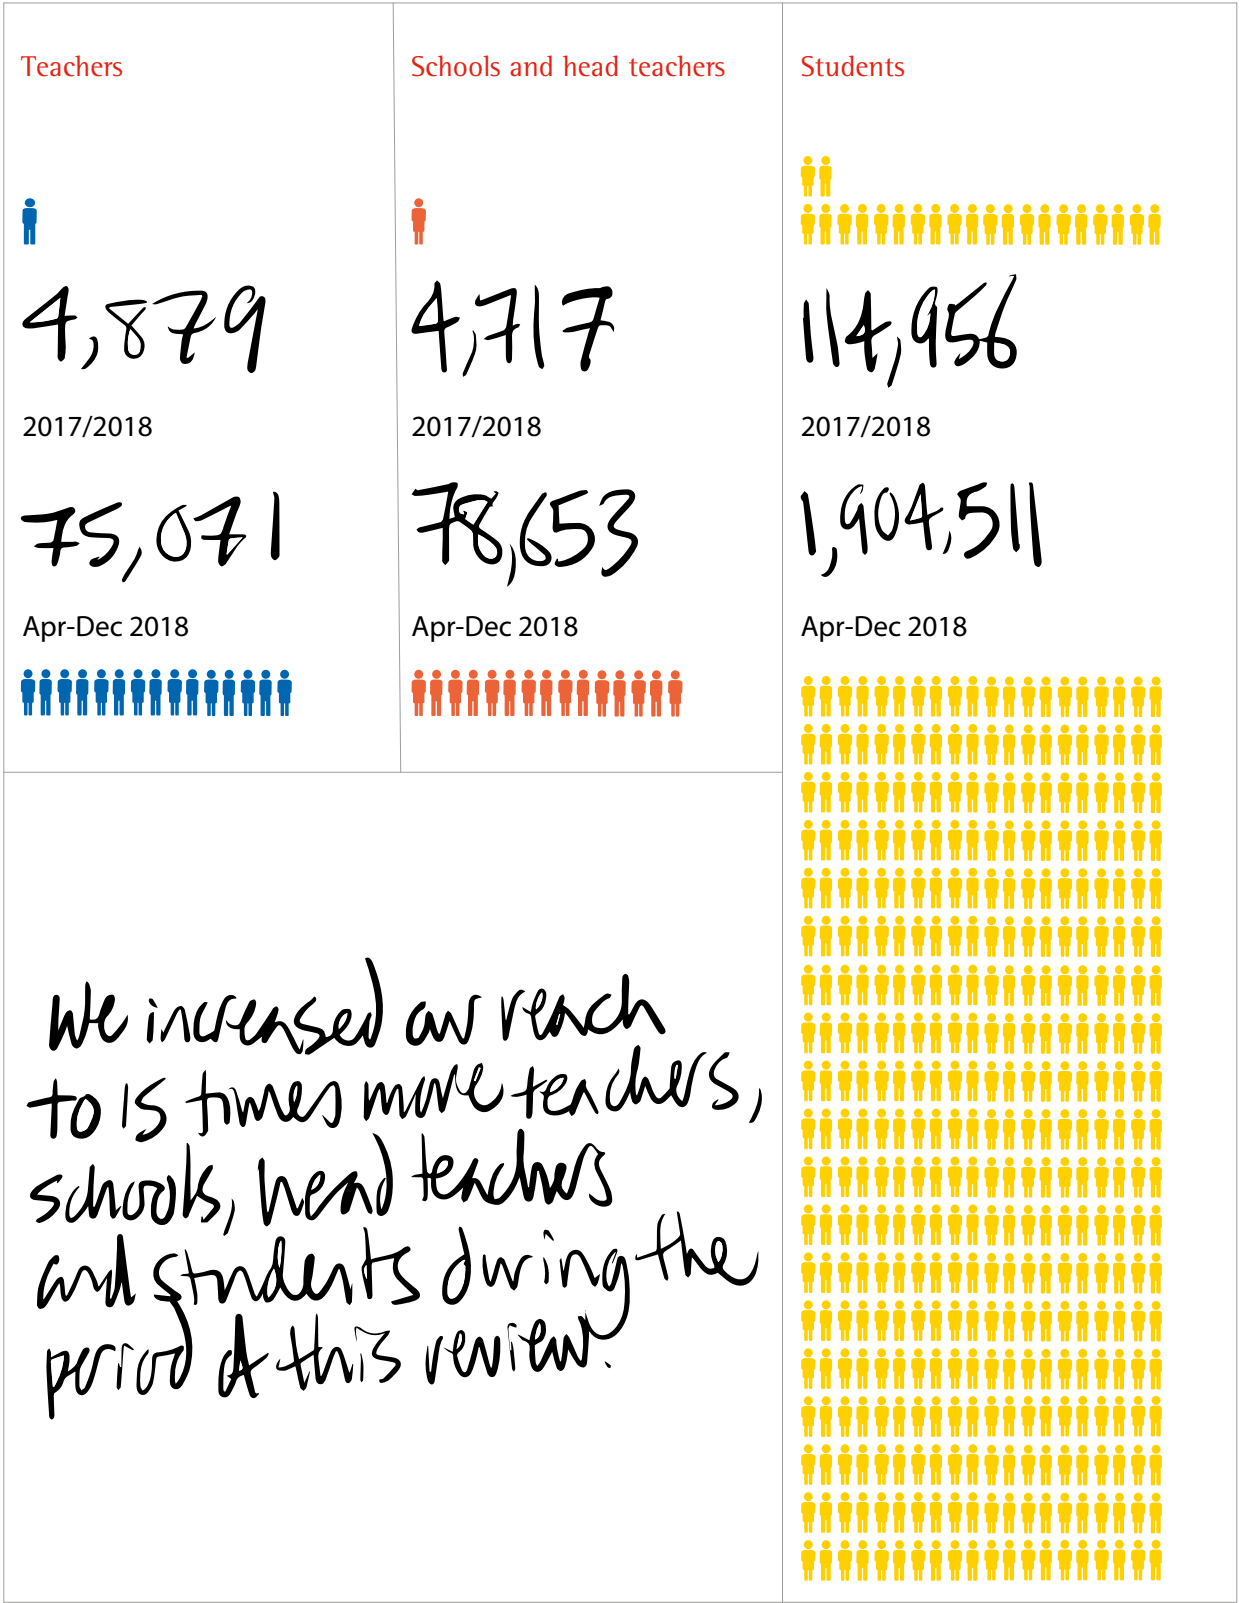 Teachers
4,879
2017/2018
75,071
Apr-Dec 2018
Schools and head teachers
4,717
2017/2018
78,653
Apr-Dec 2018
Students
114,956
2017/2018
1,904,511
Apr-Dec 2018
We increased our reach
to 15 times more teachers,
schools, head teachers
and students during the
period of this review.